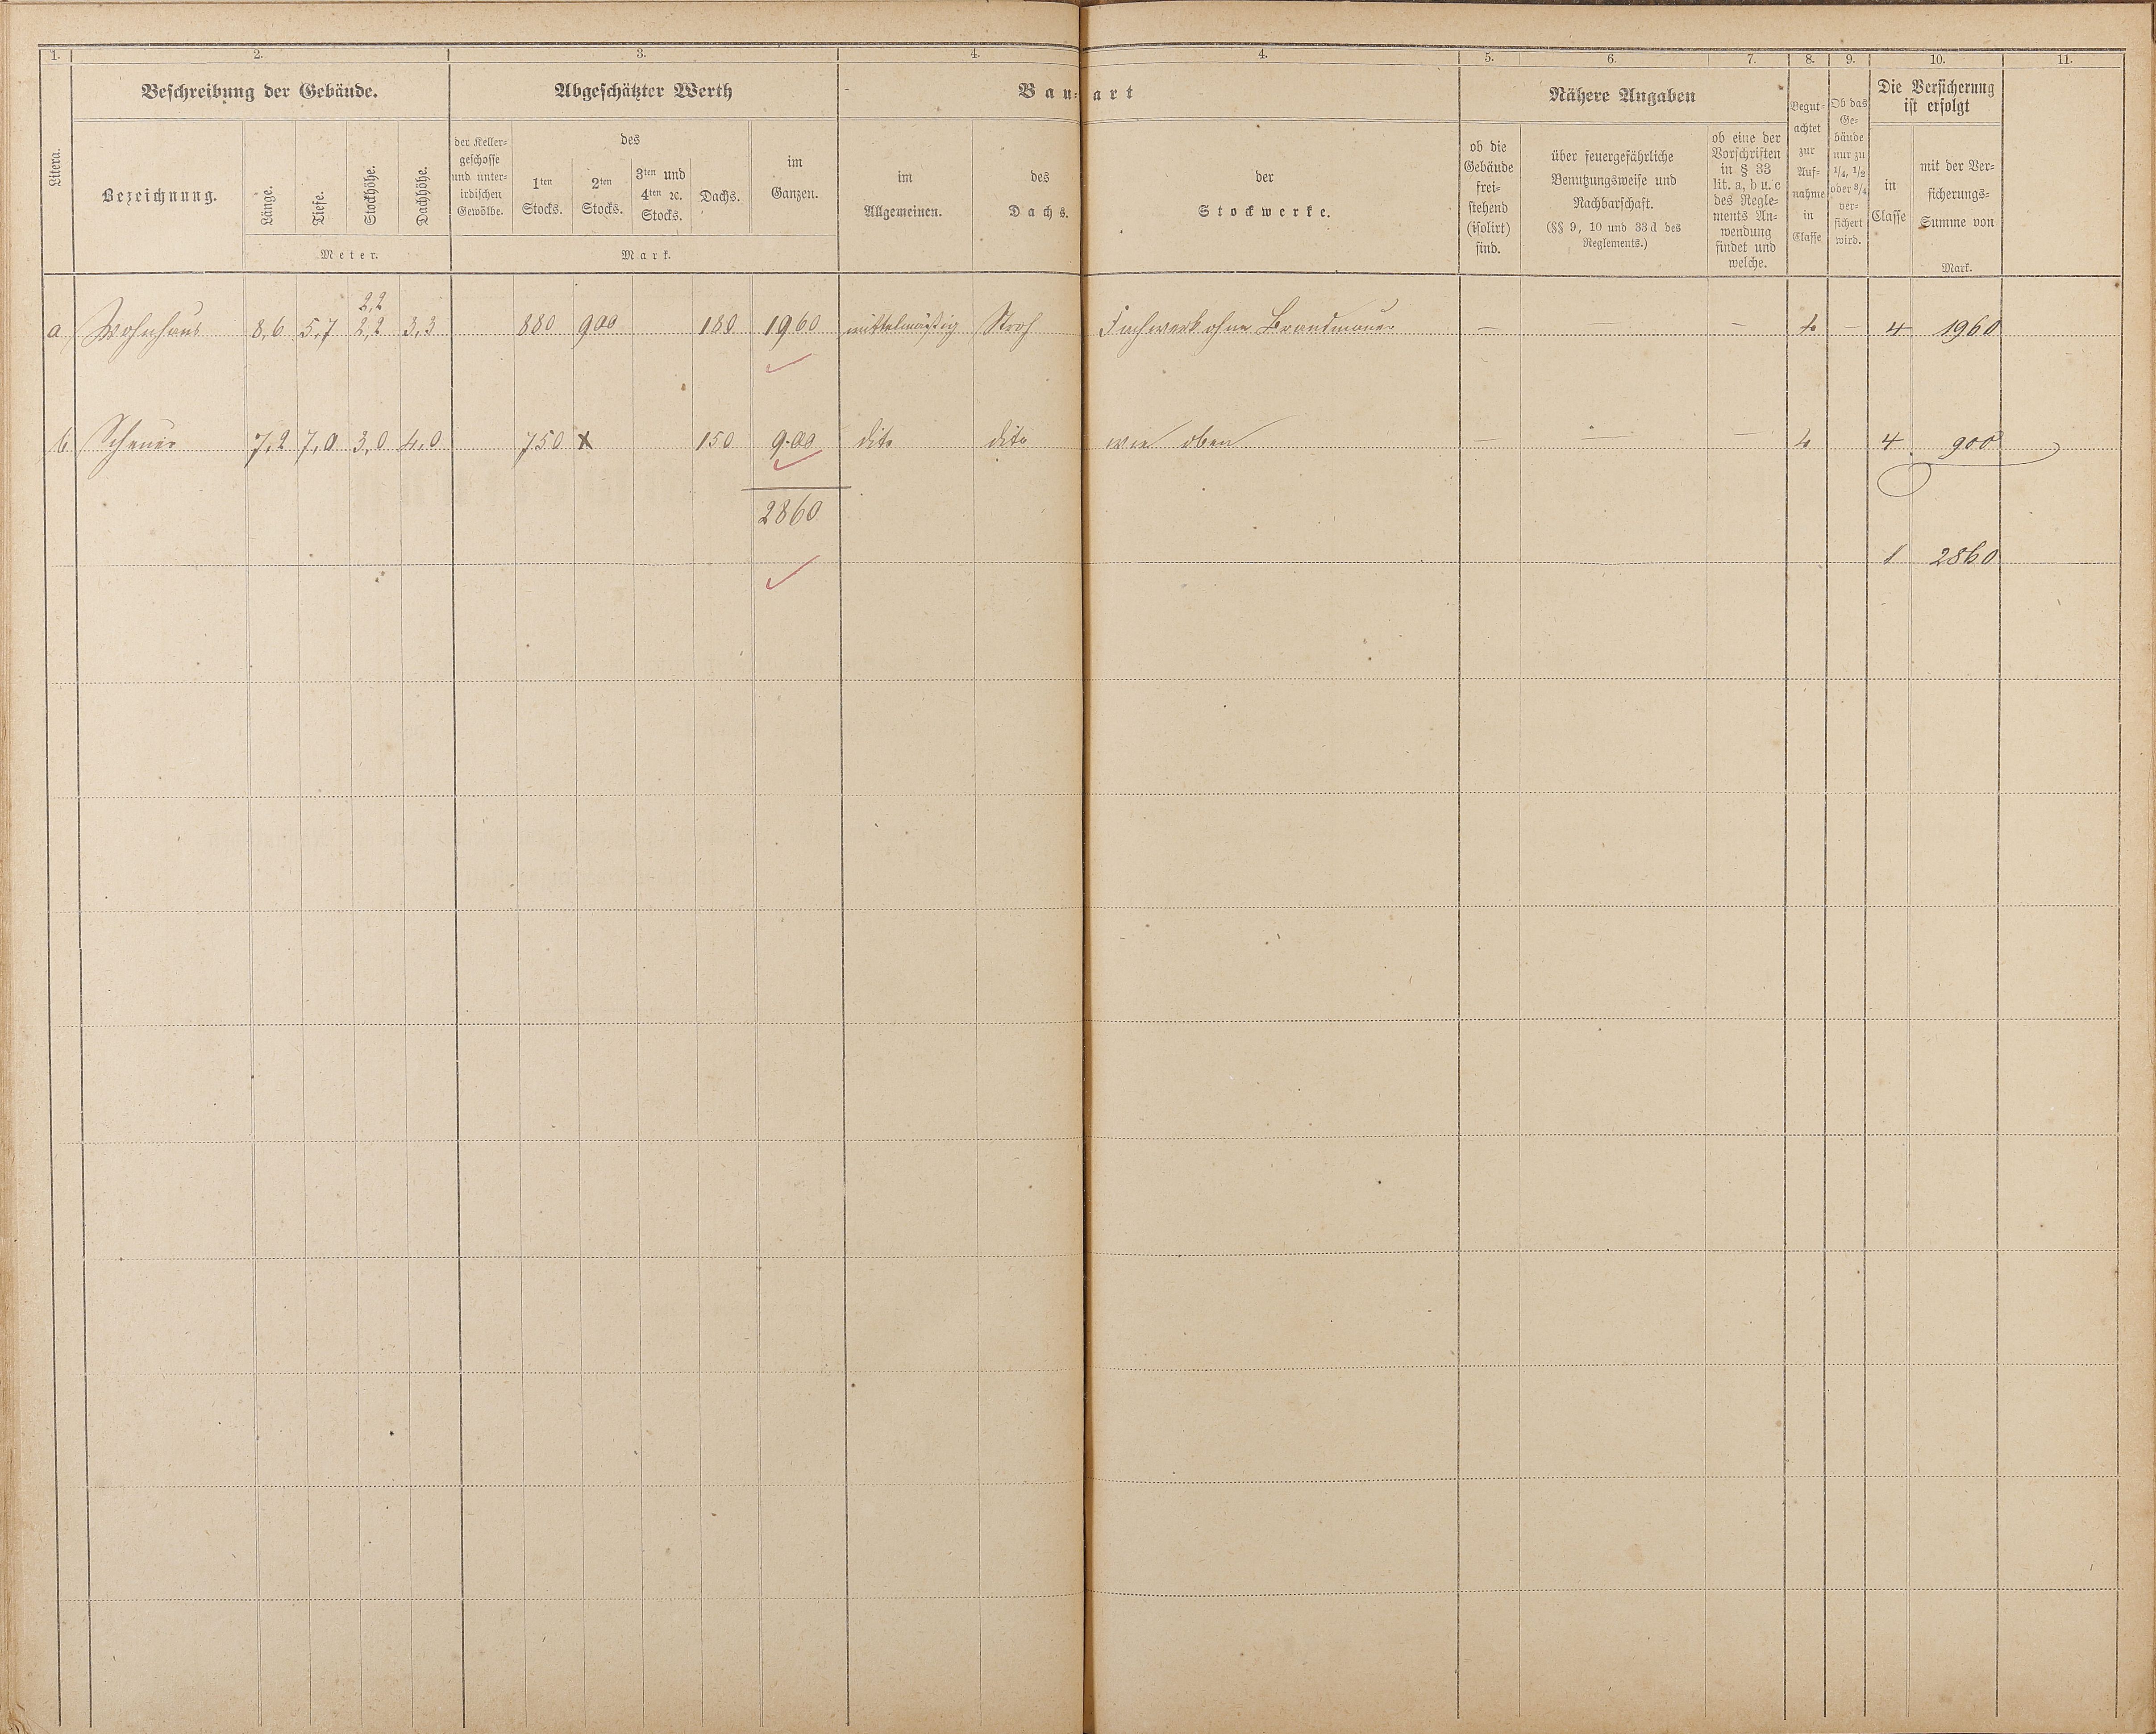 1. 2. 3. 4. 4. 5. 6. 7. 8. 9. 10. 11.
Litera.
Beschreibung der Gebäude.
Bezeichnung.
Länge.
Tiefe.
Stockhöhe.
Dachhöhe.
Meter.
Abgeschätzter Werth
der Keller-
geschosse
und unter-
irdischen
Gewölbe.
des
1ten
Stocks.
2ten
Stocks.
3ten und
4ten ꝛc.
Stocks.
Dachs.
im
Ganzen.
Mark.
Bau-art
im
Allgemeinen.
des
Dachs.
der
Stockwerke.
Nähere Angaben
ob die
Gebäude
frei-
stehend
(isolirt)
sind.
über feuergefährliche
Benutzungsweise und
Nachbarschaft.
(§§ 9, 10 und 33 d des
Reglements.)
ob eine der
Vorschriften
in § 33
lit. a, b u. c
des Regle-
ments An-
wendung
findet und
welche.
Begut-
achtet
zur
Auf-
nahme
in
Classe
Ob das
Ge-
bäude
nur zu
1/4, 1/2
oder 3/4
ver-
sichert
wird.
Die Versicherung
ist erfolgt
in
Classe
mit der Ver-
sicherungs-
Summe von
Mark.
2,2
a Wohnhaus 8,6 5,7 2,2 3,3 880 900 180 1960 mittelmäßig Stroh Fachwerk ohne Brandmauer — — — 4 — 4 1960
b Scheuer 7,2 7,0 3,0 4,0 750 x 150 900 dito dito wie oben — — — 4 4 900
2860
1 2860